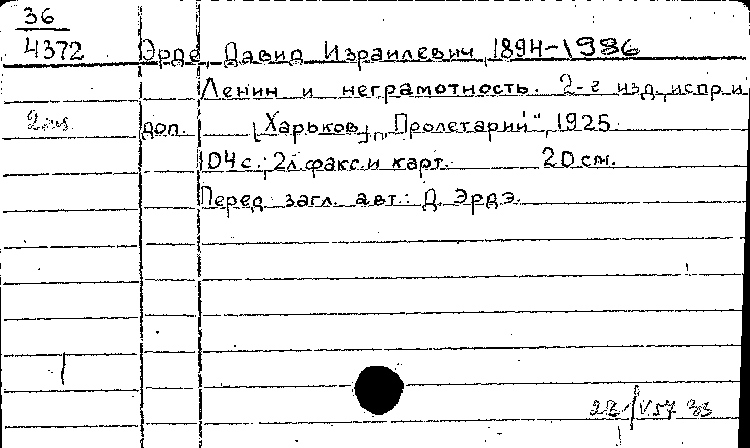 36
4372 Эрдэ, Давид Израилевич, 1894-1936
Ленин и неграмотность. 2-е изд., испр. и
2 экз. доп. [Харьков], "Пролетарий", 1925.
104 с.; 2 л. факс. и карт. 20 см.
Перед загл. авт.: Д. Эрдэ.